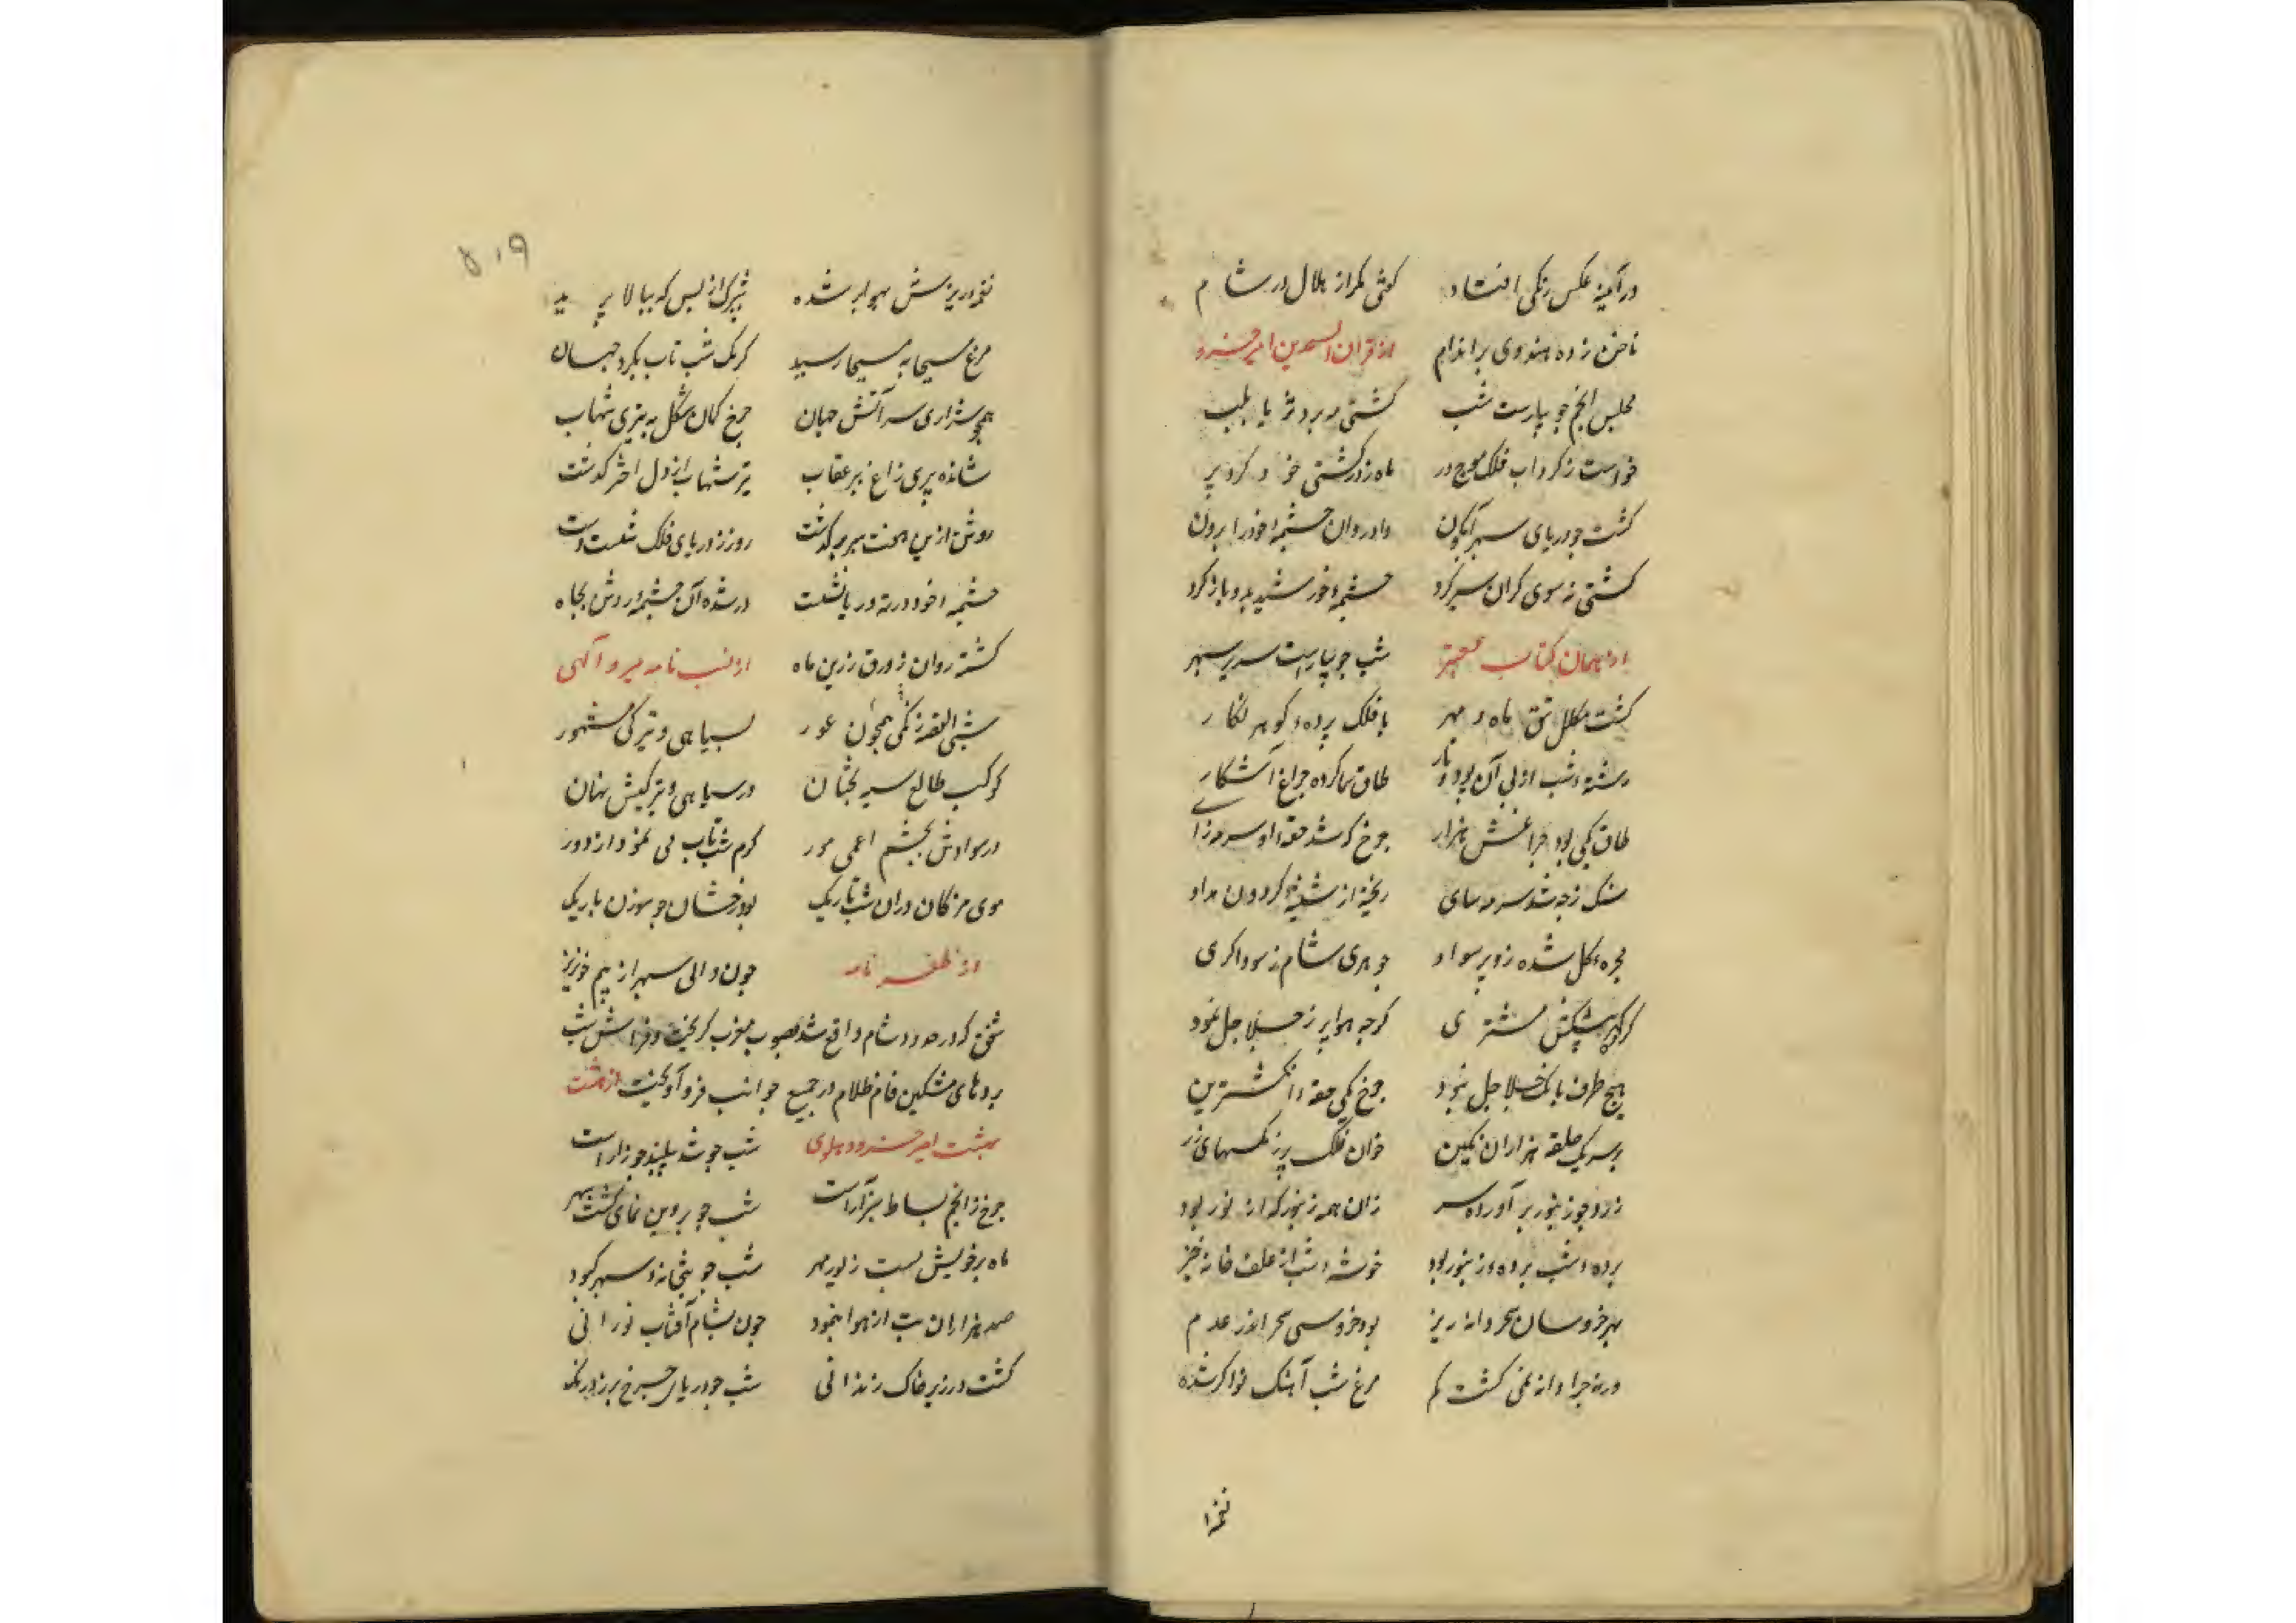 در آمینه عکس زنکی افتاد کوئی کمر از هلال در شام
ناخن زده هندوی بر اندام از قران السعدین امیر خسرو
مجلس انجم چو بیارست شب کشتی مه برد ثریا بلب
خواست ز کرداب فلک موج در ماه زر کشتی خود کرد پر
کشت چو دریای سپهر آبکون داد روان چشمهٔ خود را برون
کشتی ز سوی کران سیر کرد چشمهٔ خورشید بدو باز کرد
از همان کتاب معتبر شب چو بیاراست سریر سپهر
کشت مکلل تتق ماه و مهر بافلک پرده کوهر نکار
رشتهٔ شب از پی آن پود و تار طاق نما کرده چراغ آشکار
طاق یکی بود چراغش هزار چرخ که شد حقهٔ او سرمه زای
سنک زجه شد سرمه سای ریخته از شیشهٔ کردون مداد
حجره کل شده زو پر سواد جوهری شام ز سوداکری
کرده پیشکش مشتری کرچه هوا پر ز جلاجل نمود
هیچ طرف بانک جلاجل نبود چرخ یکی حقهٔ انکشترین
بر سر یک حلقه هزاران نکین خوان فلک پر ز مکسهای زر
زرد چو زنبور بر آورده سر زان همه زنبور که از نور بود
پردهٔ شب پردهٔ زنبور بود خوشهٔ شب از علف خانه خیز
بهر خروسان سحر دانه ریز بود خروس سحر اندر عدم
ورنه چرا دانه نمی کشت کم مرغ شب آهنک نواکر شده
نغمه
۵۱۹
نغمه در ریزش هوا بر شده شب پرک از بس که ببالا پرید
مرغ مسیحا به مسیحا رسید کرمک شب تاب بکرد جهان
همچو شراری سر آتش جهان چرخ کمان شکل به تیزی شهاب
شانده پری زاغ بپر عقاب تیر شهاب از دل اختر کذشت
روشن ازین هفت سپر بر کذشت روز ز دریای فلک شست دست
چشمهٔ خود در ته دریا نشست در شده آن چشمهٔ روشن بجاه
کشته روان زورق زرین ماه از شب نامه میر و آکهی
شبی القصه زنکی همچون عور بسیاهی و تیرکی مشهور
کوکب طالع سیه بختان در سیاهی و تیرکیش نهان
در سوادش بچشم اعمی مور کرم شب تاب می نمود از دور
موی مژکان دران شب تاریک بود رخشان چو سوزن باریک
از ظفر نامه چون والی سپهر از بیم خونریز
شفق که در حدود شام واقع شد بصوب مغرب کریخت و فراش شب
پردهای مشکین فام ظلام در جمیع جوانب فرو آویخت از هشت
بهشت امیر خسرو دهلوی شب چو شد پلید جوزا راست
چرخ ز انجم بساط سبز آراست شب چو پروین نمای کشت سپهر
ماه بر خویش بست زیور مهر شب چو بتخانهٔ سپهر کبود
صد هزاران بت از هوا بنمود چون بشام آفتاب نورانی
کشت در زیر خاک زندانی شب چو دریای چرخ بر زد رنک